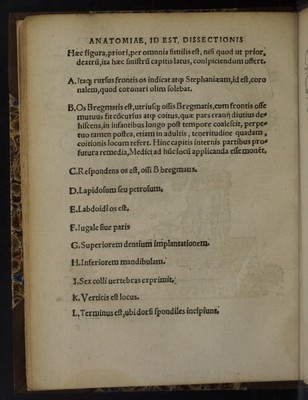 ANATOMIAE, ID EST, DISSECTIONIS
Hæc figura, priori, per omnia similis est, nisi quod ut prior,
dextrū, ita hæc sinistrū capitis latus, conspiciendum offert.
A. Itaq; rursus frontis os indicat atq; Stephaniæam, id est, coro
nalem, quod coronari olim solebat.
B. Os Bregmatis est, utriusq; ossis Bregmatis, cum frontis osse
mutuus fit cōcursus atq; coitus, quæ pars cranij diutius de-
hiscens, in infantibus longo post tempore coalescit, perpe-
tuo tamen postea, etiam in adultis, teneritudine quadam,
coitionis locum refert. Hinc capitis internis partibus pro-
futura remedia, Medici ad hūc locū applicanda esse monēt.
C. Respondens os est, ossi B bregmatis.
D. Lapidosum seu petrosum.
E. Labdoidi os est.
F. Iugale siue paris
G. Superiorem dentium implantationem.
H. Inferiorem mandibulam.
I. Sex colli uertebras exprimit.
K. Verticis est locus.
L. Terminus est, ubi dorsi spondiles incipiunt.